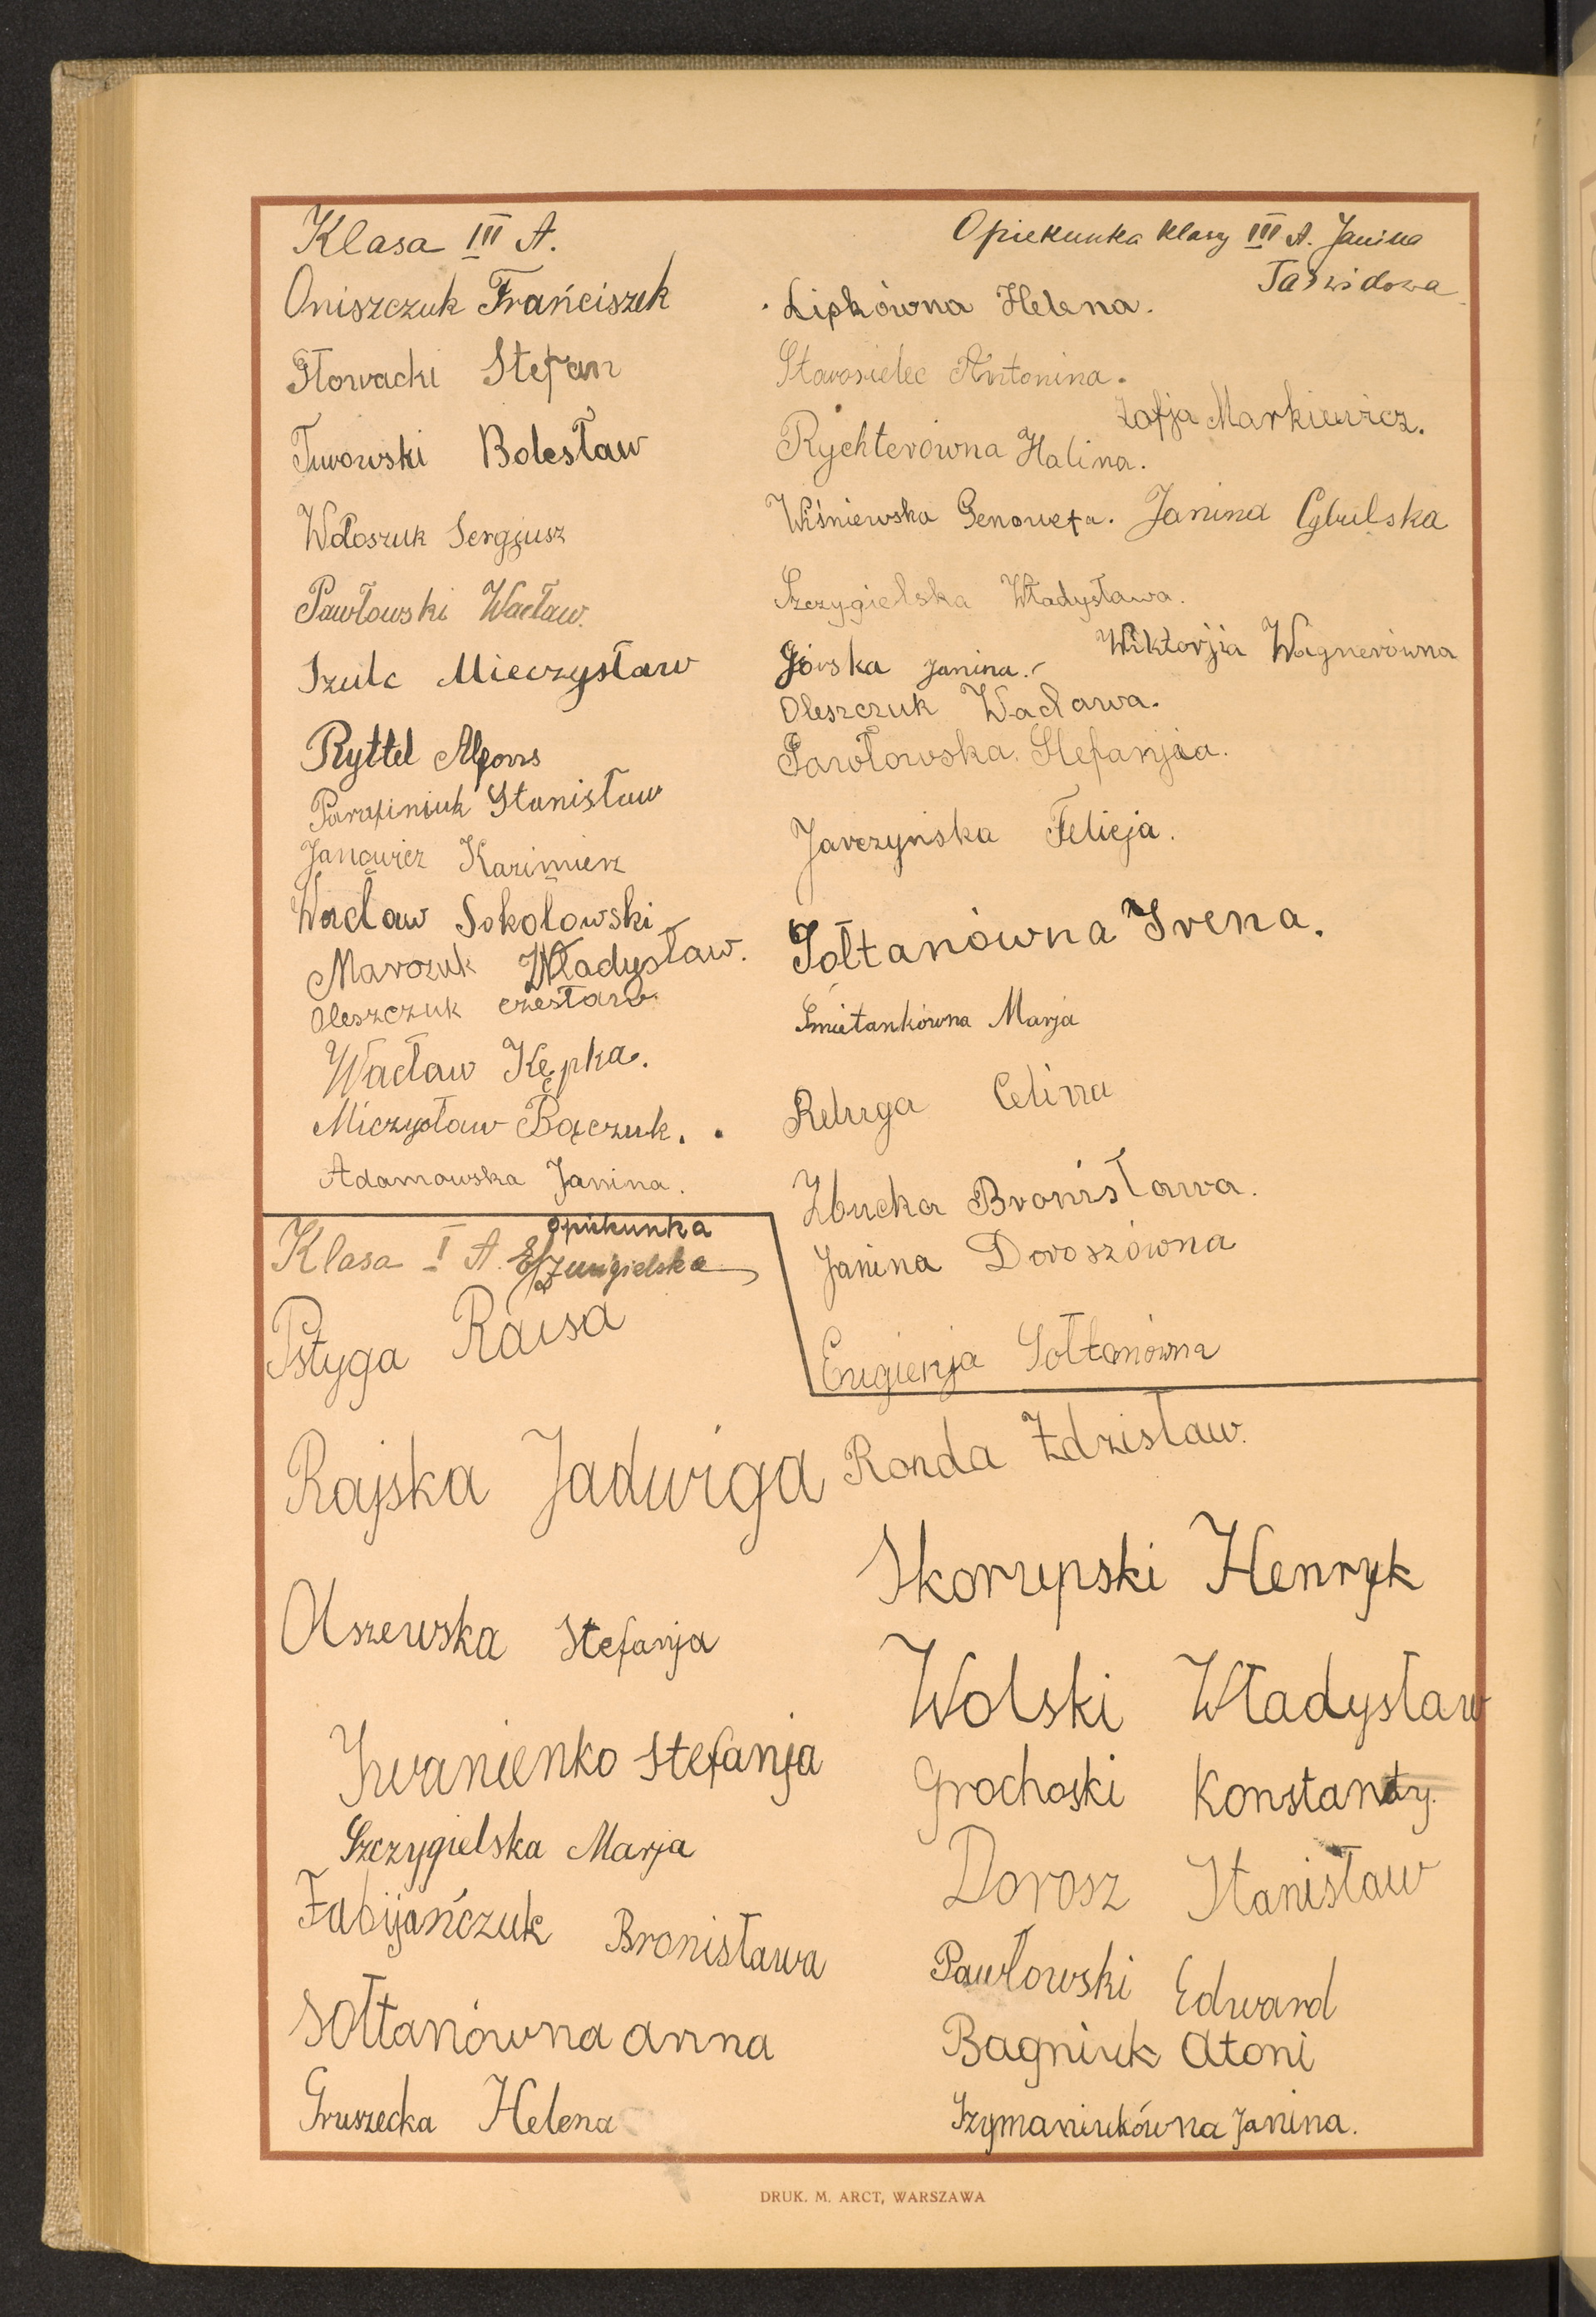 Klasa III A.
Opiekunka klasy III A. Janina
Oniszczuk Frańciszek
Głowacki Stefan
Turowski Bolesław
Wołoszuk Sergjusz
Pawłowski Wacław.
Szulc Mieczysław
Ryttel Alfons
Parafiniuk Stanisław
Janowicz Kazimierz
Wacław Sokołowski
Marczuk Władysław.
Oleszczuk czesław.
Wacław Kępka.
Miczysław Bączuk.
Adamowska Janina.
Lipkówna Helena.
Starosielec Antonina.
Zofja Markiewicz.
Rychterówna Halina.
Wiśniewska Genowefa. Janina Cybulska
Szczygielska Władysława.
Wiktorjia Wagnerówna
Górska Janina.
Oleszczuk Wacława.
Pawłowska Stefanjia.
Jarczyńska Felicja.
Sołtanówna Irena.
Śmietankówna Marja
Reluga Celina
Zbucka Bronisława.
Janina Doroszówna
Eugienja Sołtanówna
Klasa I A. opiekunka
Pstyga Raisa
Rajska Jadwiga
Olszewska Stefanja
Iwanienko Stefanja
Szczygielska Marja
Fabijańczuk Bronisława
Sołtanówna anna
Gruszecka Helena
Ronda Zdzisław.
Skorupski Henryk
Wolski Władysław
Grochoski Konstanty.
Dorosz Stanisław
Pawłowski Edward
Bagniuk Atoni
Szymaniukówna Janina.
DRUK. M. ARCT, WARSZAWA